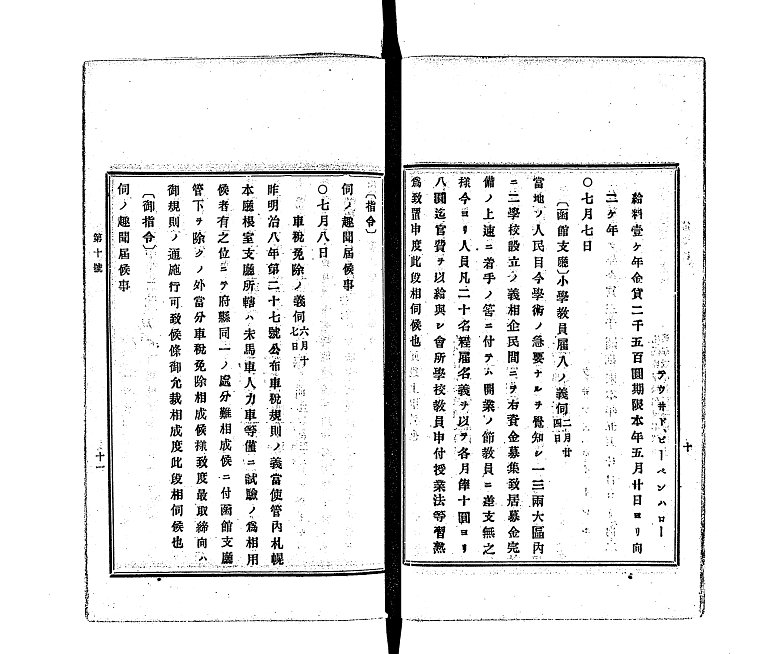 テウ井ド、ビーペンハロー
給料壹ケ年金貨二千五百圓期限本年五月廿日ヨリ向
二ケ年
〇七月七日
〔函館支廳〕小學教員雇入ノ義伺二月廿四日
當地ノ人民目今學術ノ急要ナルヲ覺知シ一三兩大區内
ニ二學校設立ノ義相企民間ニヲ右資金募集致居募金完
備ノ上速ニ着手ノ筈ニ付テハ開業ノ節教員ニ差支無之
樣今ヨリ人員凡二十名程雇名義ヲ以テ各月俸十圓ヨリ
八圓迄官費ヲ以給與シ會所學校教員申付授業法等習熟
爲致置申度此段相伺候也
十
〔指令〕
伺ノ趣聞届候事
〇七月八日
車税免除ノ義伺六月十七日
昨明治八年第二十七號公布車税規則ノ義當使管内札幌
本廳根室支廳所轄ハ未馬車人力車等僅ニ試驗ノ爲相用
候者有之位ニヲ府縣同一ノ處分難相成候ニ付函館支廳
管下ヲ除クノ外當分車税免除相成候樣致度最取締向ハ
御規則ノ通施行可致候條御允裁相成度此段相伺候也
〔御指令〕
伺ノ趣聞届候事
第十號
十一